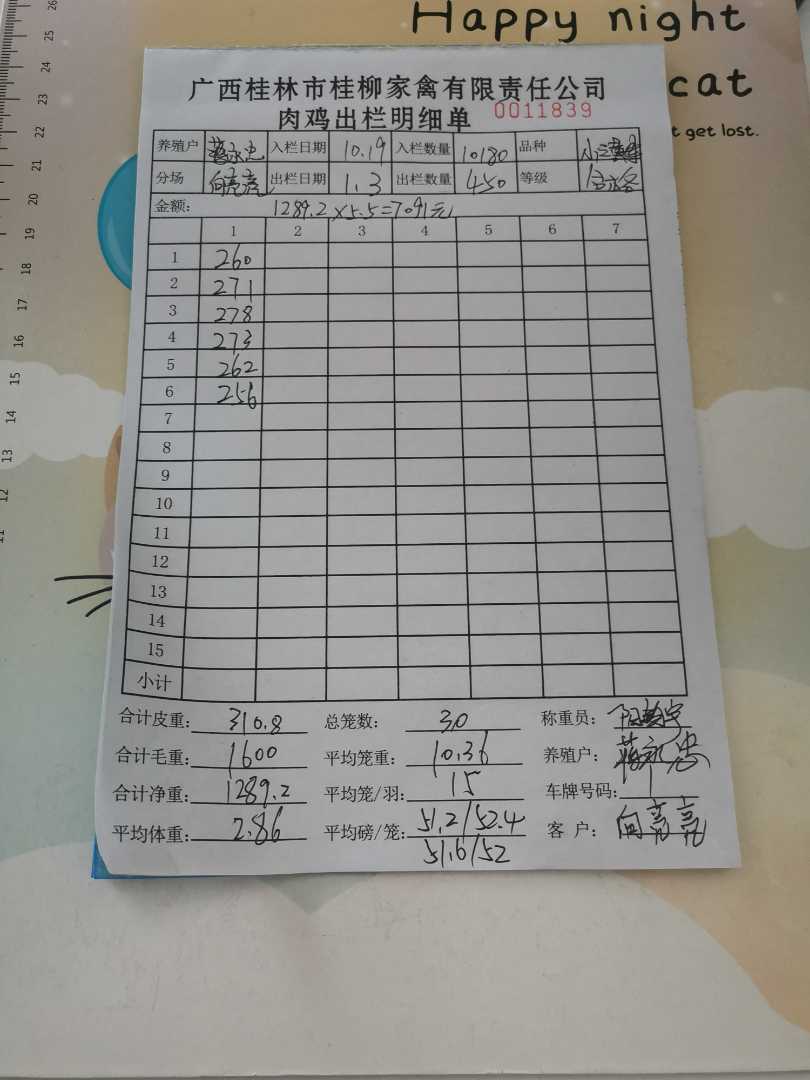 Happy night
cat
t get lost.
广西桂林市桂柳家禽有限责任公司
肉鸡出栏明细单 0011839
养殖户 蒋永忠 入栏日期 10.19 入栏数量 10180 品种
分场 向亮亮 出栏日期 1.3 出栏数量 450 等级
金额: 1289.2×5.5=7091元
1 2 3 4 5 6 7
1 260
2 271
3 278
4 273
5 262
6 256
7
8
9
10
11
12
13
14
15
小计
合计皮重: 310.8 总笼数: 30 称重员:
合计毛重: 1600 平均笼重: 10.36 养殖户: 蒋永忠
合计净重: 1289.2 平均笼/羽: 15 车牌号码:
平均体重: 2.86 平均磅/笼: 51.2/52.4 客 户: 向亮亮
51.6/52
26
25
24
23
22
21
20
19
18
17
16
15
14
13
12
11